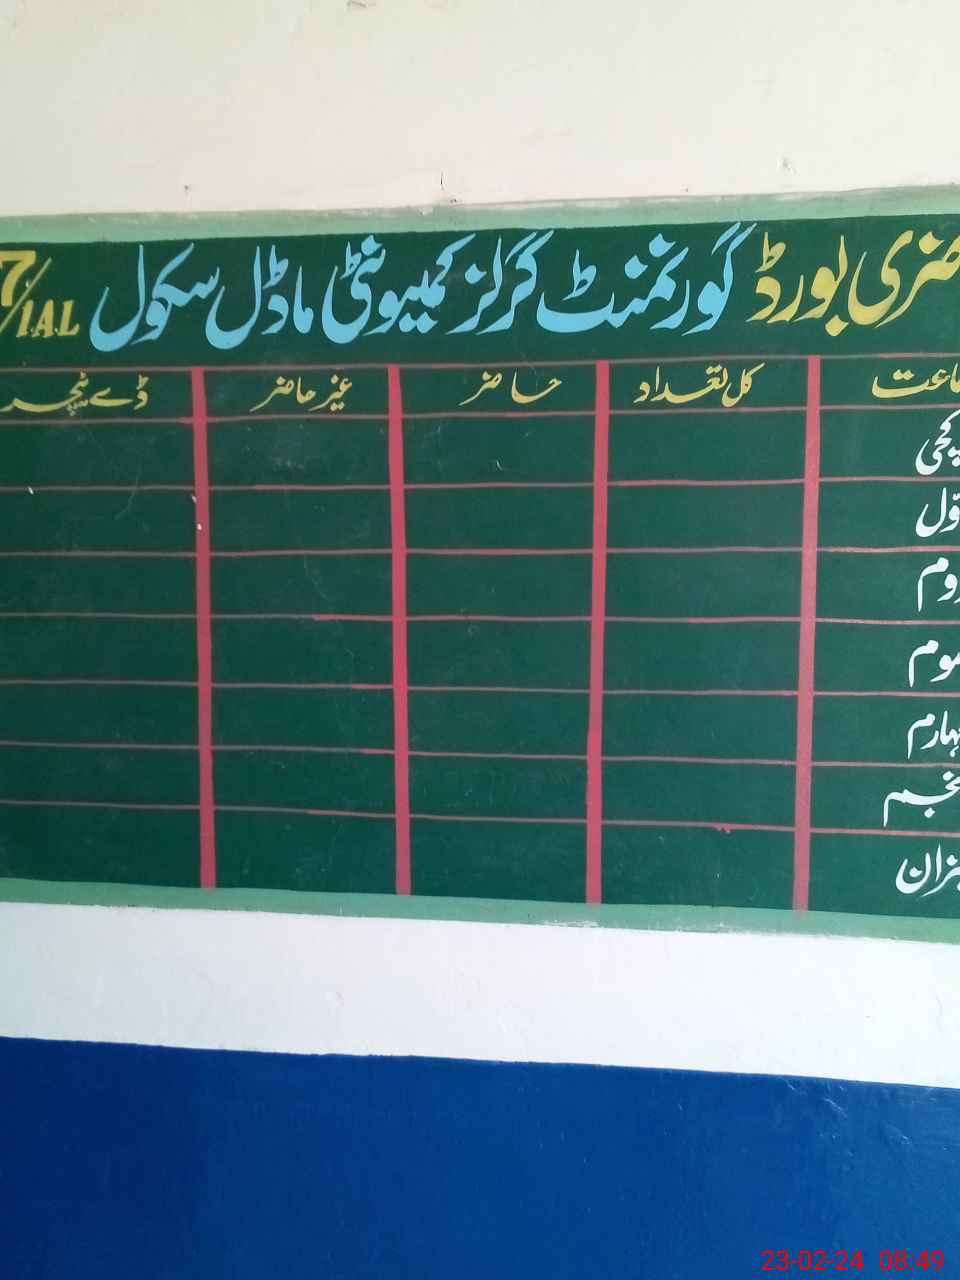 ضری بورڈ گورنمنٹ گرلز کمیونٹی ماڈل سکول 7/1AL
ماعت کل تعداد حاضر غیر حاضر ڈے ٹیچر
کچی
اوّل
دوم
سوم
چہارم
پنجم
میزان
23-02-24 08:49